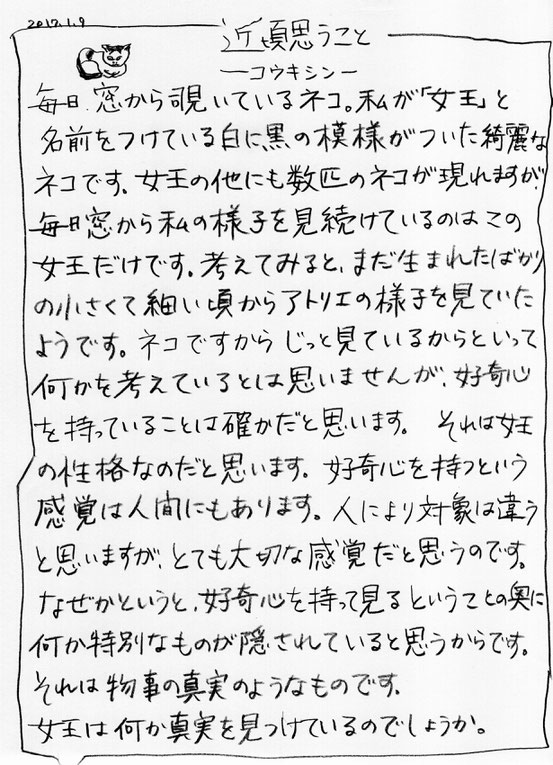 2017.1.9
近頃思うこと
―コウキシン―
毎日、窓から覗いているネコ。私が「女王」と
名前をつけている白に、黒の模様がついた綺麗な
ネコです。女王の他にも数匹のネコが現れますが、
毎日窓から私の様子を見続けているのはこの
女王だけです。考えてみると、まだ生まれたばかり
の小さくて細い頃からアトリエの様子を見ていた
ようです。ネコですからじっと見ているからといって
何かを考えているとは思いませんが、好奇心
を持っていることは確かだと思います。 それは女王
の性格なのだと思います。好奇心を持つという
感覚は人間にもあります。人により対象は違う
と思いますが、とても大切な感覚だと思うのです。
なぜかというと、好奇心を持って見るということの奥に
何か特別なものが隠されていると思うからです。
それは物事の真実のようなものです。
女王は何か真実を見つけているのでしょうか。